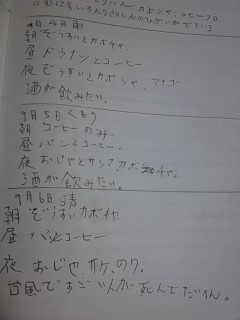 9月4日雨
朝 ぞうすいとカボチャ
昼 ドウナツとコーヒー
夜 ぞうすいとカボシャ、アナゴ
酒が飲みたい。
9月5日くもり
朝 コーヒーのみ
昼 パンとコーヒー
夜 おじやとサンマ カボチャ。
酒が飲みたい。
9月6日 晴
朝 ぞうすいカボチャ
昼 パンとコーヒー
夜 おじや、サケ、のり、
台風ですごい人が死んで